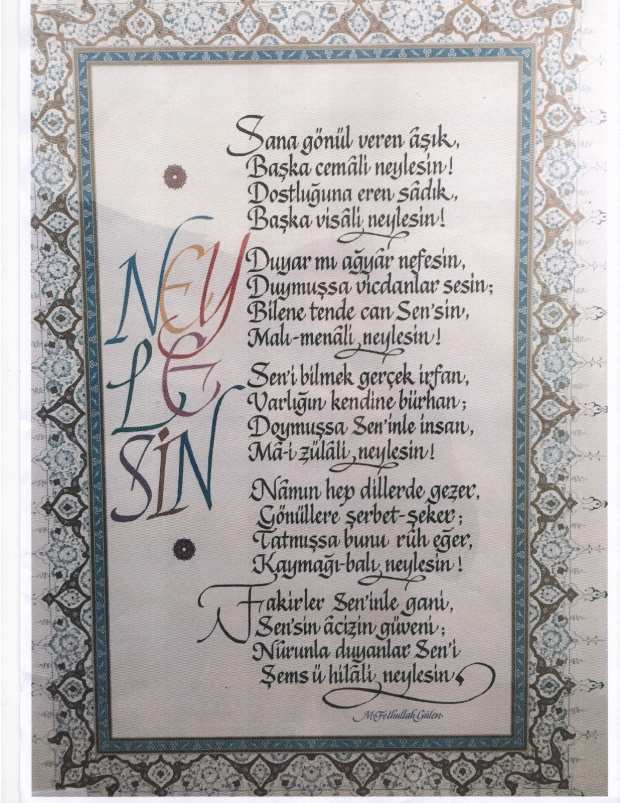 NEY
LE
SİN
Sana gönül veren âşık,
Başka cemâli neylesin!
Dostluğuna eren sâdık,
Başka visâli neylesin!
Duyar mı ağyâr nefesin,
Duymuşsa vicdanlar sesin;
Bilene tende can Sen'sin,
Malı-menâli neylesin!
Sen'i bilmek gerçek irfan,
Varlığın kendine bürhan;
Doymuşsa Sen'inle insan,
Mâ-i zülâli neylesin!
Nâmın hep dillerde gezer,
Gönüllere şerbet-şeker;
Tatmışsa bunu rûh eğer,
Kaymağı-balı neylesin!
Fakirler Sen'inle gani,
Sen'sin âcizin güveni;
Nûrunla duyanlar Sen'i
Şems ü hilâli neylesin
M. Fethullah Gülen